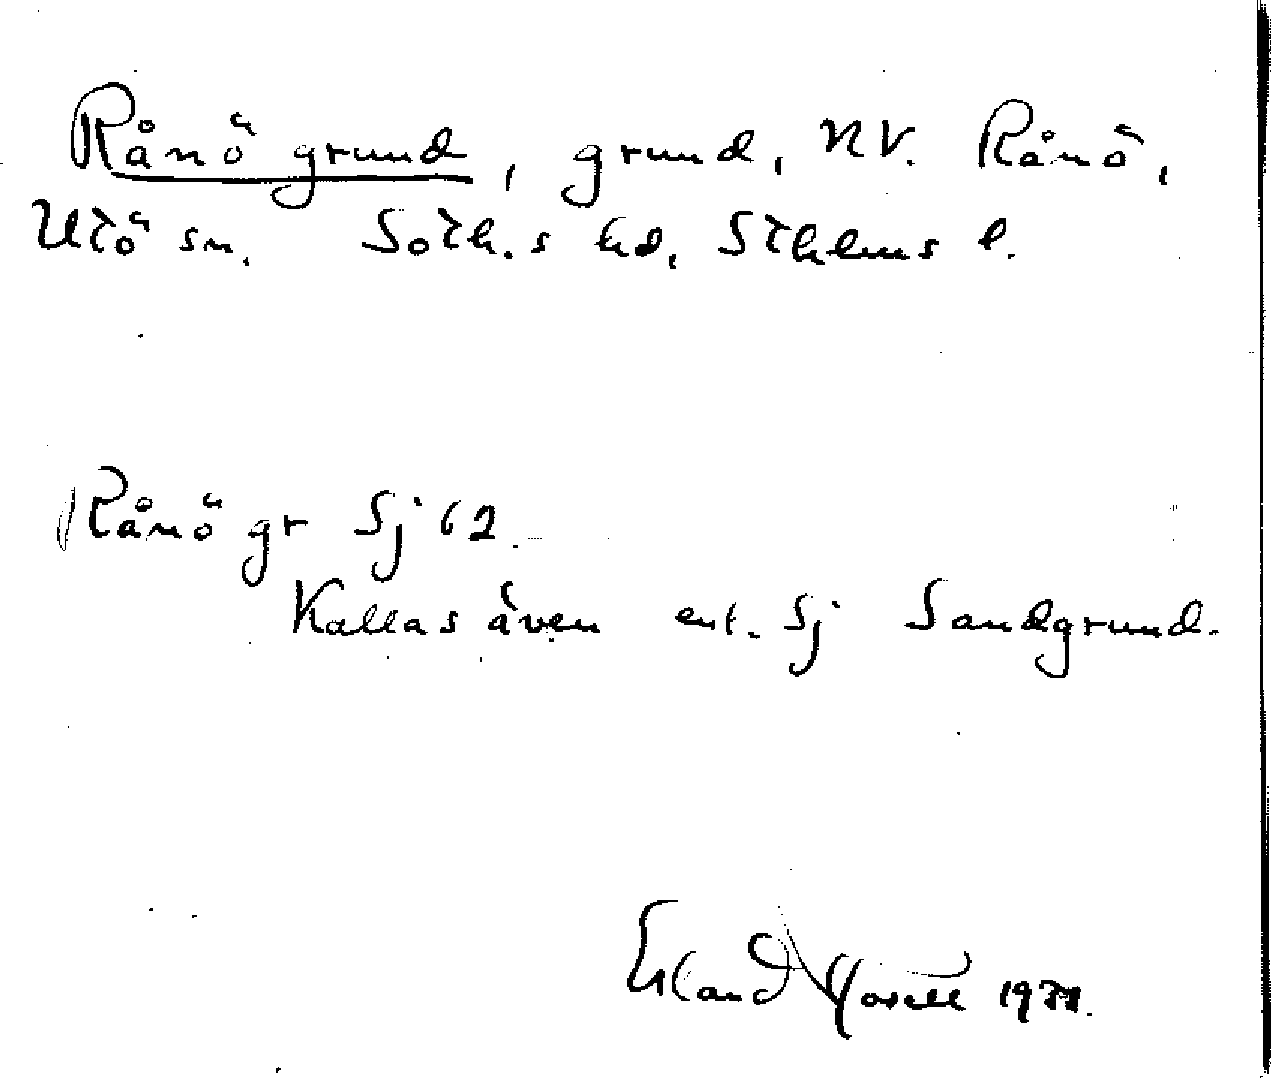 Rånö grund, grund, NV. Rånö,
Utö sn. Soth.s hd, Sthlms l.
Rånö gr Sj 62
Kallas även enl. Sj Sandgrund.
Erland 19